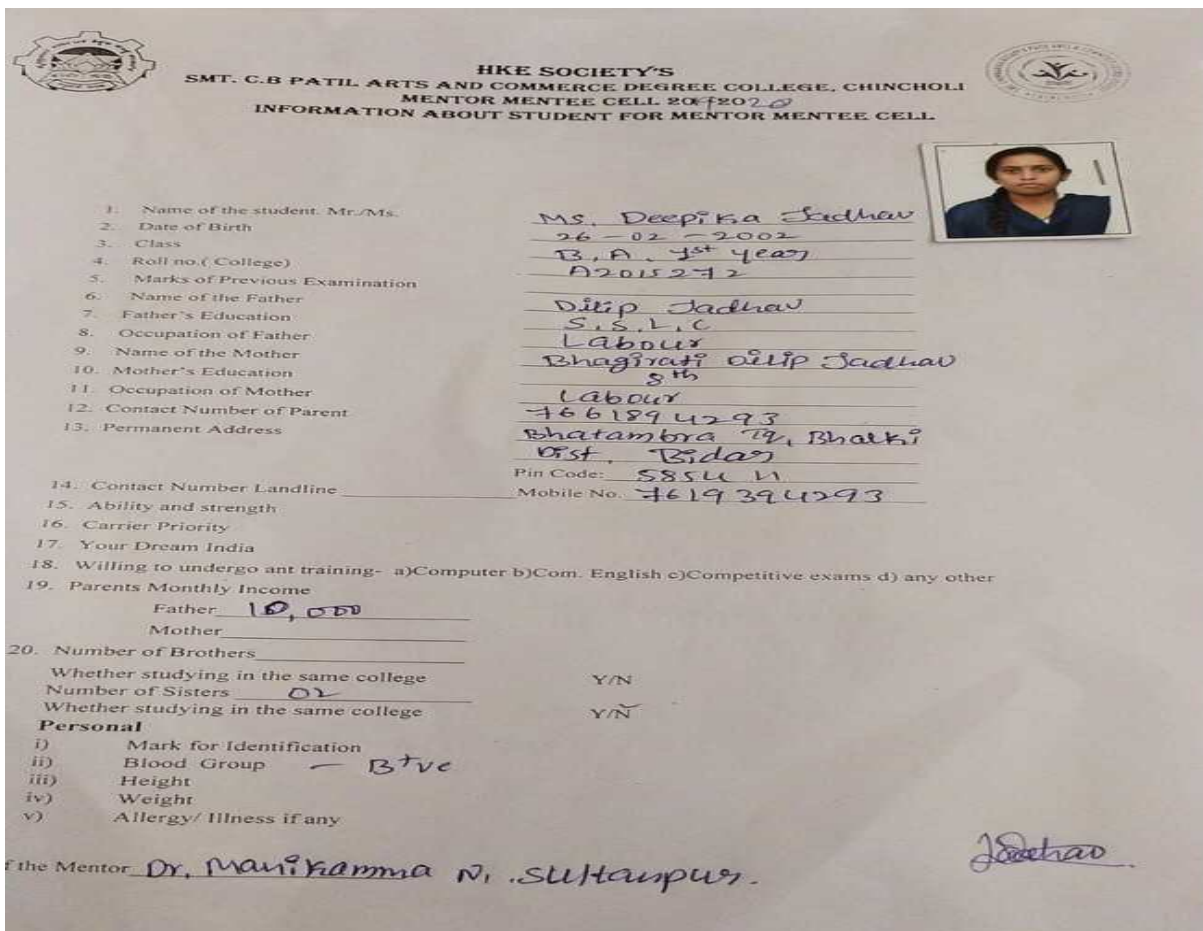 HKE SOCIETY'S
SMT. C.B PATIL ARTS AND COMMERCE DEGREE COLLEGE, CHINCHOLI
MENTOR MENTEE CELL 2019 2020
INFORMATION ABOUT STUDENT FOR MENTOR MENTEE CELL
1. Name of the student. Mr./Ms. Ms. Deepika Jadhav
2. Date of Birth 26-02-2002
3. Class B.A. Ist year
4. Roll no.( College) A2015272
5. Marks of Previous Examination
6. Name of the Father Dilip Jadhav
7. Father's Education S.S.L.C
8. Occupation of Father Labour
9. Name of the Mother Bhagirati Dilip Jadhav
10. Mother's Education 8th
11. Occupation of Mother Labour
12. Contact Number of Parent 7661894293
13. Permanent Address Bhatambra Tq, Bhalki
Dist. Bidar
Pin Code: 585411
14. Contact Number Landline Mobile No. 7619394293
15. Ability and strength
16. Carrier Priority
17. Your Dream India
18. Willing to undergo ant training- a)Computer b)Com. English c)Competitive exams d) any other
19. Parents Monthly Income
Father 10,000
Mother
20. Number of Brothers
Whether studying in the same college Y/N
Number of Sisters 02
Whether studying in the same college Y/N
Personal
i) Mark for Identification
ii) Blood Group - B+ve
iii) Height
iv) Weight
v) Allergy/ Illness if any
f the Mentor Dr. Manikamma N. Sultanpur.